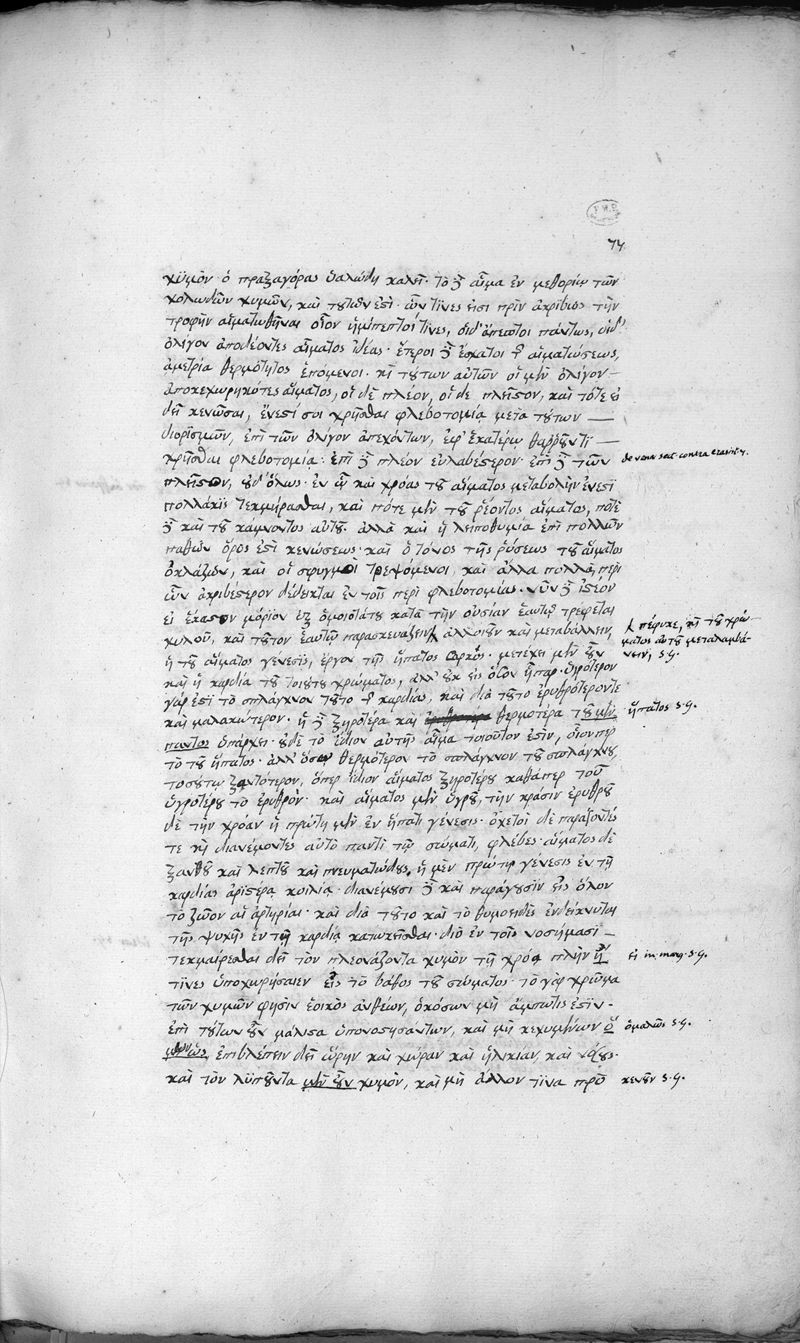 74
χυμὸν ὁ πραξαγόρας ὑαλώδη καλεῖ· τὸ δὲ αἷμα ἐν μεθορίῳ τῶν
χολωδῶν χυμῶν, καὶ τούτων ἐστί· ὧν τινες εἰσι πρὶν ἀκριβῶς τὴν
τροφὴν αἱματωθῆναι οἷον ἡμίπεπτοί τινες, οὐδ' ἄπεπτοι πάντως, οὐδ'
ὀλίγον ἀποδέοντες αἵματος ἰδέας· ἕτεροι δὲ ἔσχατοι τῆς αἱματώσεως,
ἀμετρία θερμότητος ἑπόμενοι· καὶ τούτων αὐτῶν οἱ μὲν ὀλίγον
ἀποκεχωρηκότες αἵματος, οἱ δὲ πλέον, οἱ δὲ πλεῖστον, καὶ τότε εἰ
δεῖ κενῶσαι, ἔνεστί σοι χρῆσθαι φλεβοτομίᾳ μετὰ τούτων
διορισμῶν, ἐπὶ τῶν ὀλίγον ἀπεχόντων, ἐφ' ἑκατέρω θαρροῦντι
χρῆσθαι φλεβοτομίᾳ· ἐπὶ δὲ πλέον εὐλαβέστερον· ἐπὶ δὲ τῶν
de venæ sect. contra erasist.
πλεῖστον, οὐδ' ὅλως· ἐν ᾧ καὶ χρόας τοῦ αἵματος μεταβολὴν ἔνεστι
πολλάκις τεκμήρασθαι, καὶ πότε μὲν τοῦ ῥέοντος αἵματος, ποτὲ
δὲ καὶ τοῦ κάμνοντος αὐτοῦ· ἀλλὰ καὶ ἡ λειποθυμία ἐπὶ πολλῶν
παθῶν ὅρος ἐστὶ κενώσεως· καὶ ὁ τόνος τῆς ῥύσεως τοῦ αἵματος
ὀκλάζων, καὶ οἱ σφυγμοὶ τρεπόμενοι, καὶ ἄλλα πολλὰ, περὶ
ὧν ἀκριβέστερον δέδεικται ἐν τοῖς περὶ φλεβοτομίας· νῦν δὲ ἰστέον
εἰ ἕκαστον μόριον ἐξ ὁμοιοτάτου κατὰ τὴν οὐσίαν ἑαυτῷ τρέφεται
χυλοῦ, καὶ τοῦτον ἑαυτῷ παρασκευάζειν ἀλλοιοῦν καὶ μεταβάλλειν,
πέφυκε, καὶ τοῦ χρώ-
ματος αὐτοῦ μεταλαμβά-
νειν, s.g.
ἡ τοῦ αἵματος γένεσις, ἔργον τῆς ἥπατος σαρκός· μετέχει μὲν οὖν
καὶ ἡ καρδία τοῦ τοιούτου χρώματος, ἀλλ' οὐκ εἰς ὅσον ἧπαρ· ὑγρότερον
γάρ ἐστι τὸ σπλάγχνον τοῦτο τῆς καρδίας, καὶ διὰ τοῦτο ἐρυθρότερόν τε
καὶ μαλακώτερον· ἡ δὲ ξηροτέρα καὶ θερμοτέρα τοῦ μὲν
ἥπατος s.g.
παντος ὑπάρχει· οὐδὲ τὸ ἴδιον αὐτῆς αἷμα τοιοῦτον ἐστὶν, οἷον περ
τὸ τοῦ ἥπατος· ἀλλ' ὅσῳ θερμότερον τὸ σπλάγχνον τοῦ σπλάγχνου
τοσούτῳ ξανθότερον, ὅπερ ἴδιον αἵματος ξηροτέρου καθάπερ τοῦ
ὑγροτέρου τὸ ἐρυθρόν· καὶ αἵματος μὲν ὑγροῦ, τὴν κρᾶσιν ἐρυθροῦ
δὲ τὴν χρόαν ἡ πρώτη μὲν ἐν ἥπατι γένεσις· ὀχετοὶ δὲ παράγοντές
τε καὶ διανέμοντές αὐτὸ παντὶ τῷ σώματι, φλέβες· αἵματος δὲ
ξανθοῦ καὶ λεπτοῦ καὶ πνευματώδους, ἡ μὲν πρώτη γένεσις ἐν τῇ
καρδίας ἀριστερᾷ κοιλίᾳ· διανέμουσι δὲ καὶ παράγουσιν εἰς ὅλον
τὸ ζῷον αἱ ἀρτηρίαι· καὶ διὰ τοῦτο καὶ τὸ θυμοειδὲς ἐνδείκνυται
τῆς ψυχῆς ἐν τῇ καρδίᾳ κατωκεῖσθαι· διὸ ἐν τοῖς νοσήμασι
τεκμαίρεσθαι δεῖ τὸν πλεονάζοντα χυμὸν τῇ χρόᾳ πλὴν ἢ
εἰ in marg. s.g.
τινες ὑποχωρήσαιεν εἰς τὸ βάθος τοῦ σώματος· τὸ γὰρ χρῶμα
τῶν χυμῶν φησὶν ἐοικὸς ἀνθέων, ὁκόσων μὴ ἄμπωτις ἐστίν·
ἐπὶ τούτων οὖν μάλιστα ὑπονοστησάντων, καὶ μὴ κεχυμένων
ὁμαλῶς s.g.
ἐπιβλέπειν δεῖ ὥρην καὶ χώραν καὶ ἡλικίαν καὶ νόσους·
καὶ τὸν λυποῦντα μὲν οὖν χυμὸν, καὶ μὴ ἄλλον τινα πρὸ
κενοῦν s.g.